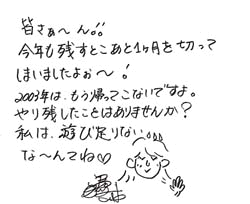 皆さぁ～ん!!
今年も残すとこあと1ヶ月を切って
しまいましたよぉ～!
2003年は、もう帰ってこないですよ。
やり残したことはありませんか?
私は、遊び足りない
な～んてね♡